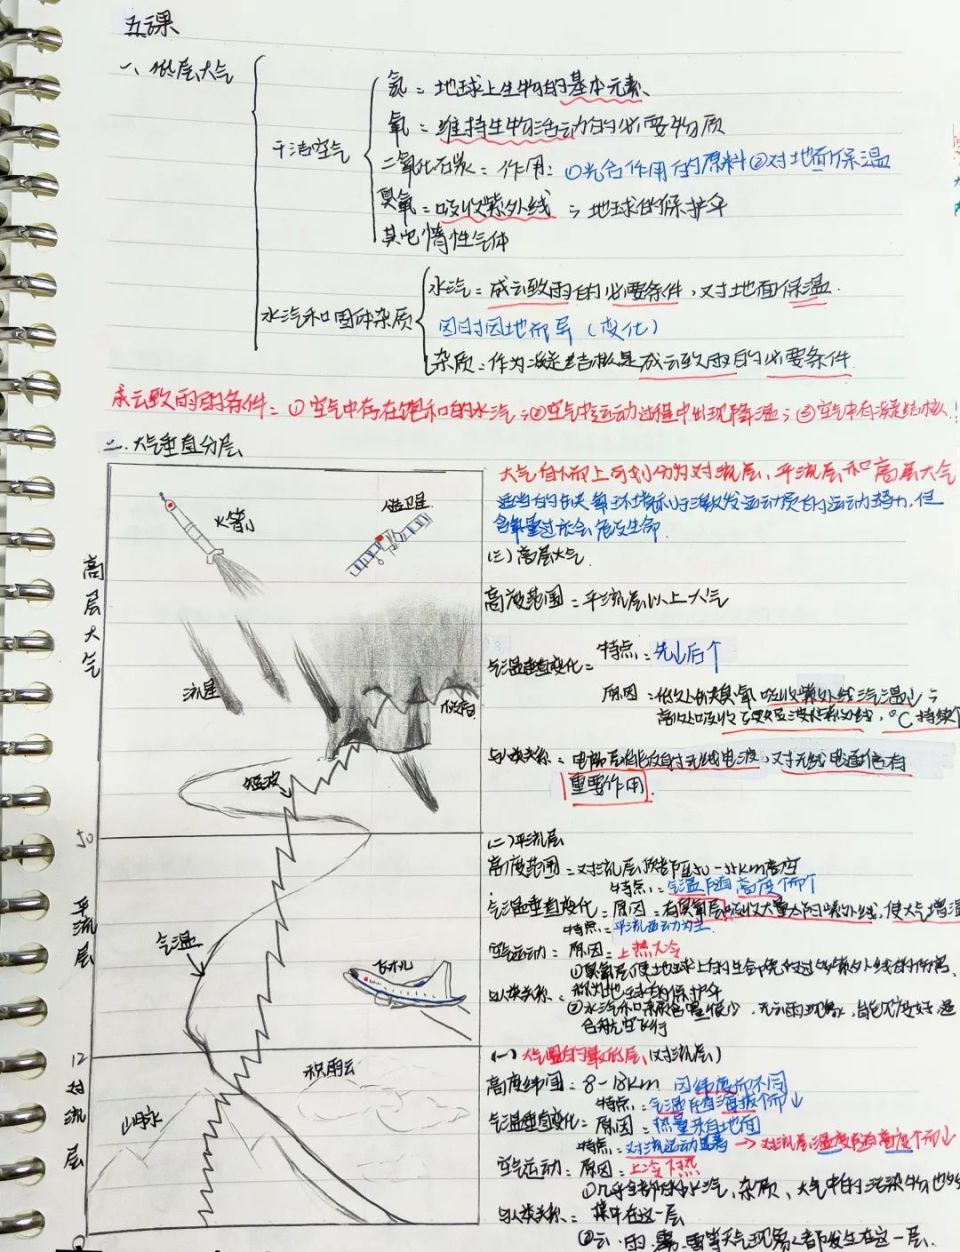 五课
一、低层大气
干洁空气
氮：地球上生物的基本元素、
氧：维持生物活动的必要物质
二氧化碳：作用：①光合作用的原料②对地面保温
臭氧：吸收紫外线 ⇒ 地球的保护伞
其它惰性气体
水汽和固体杂质
水汽：成云致雨的必要条件，对地面保温
因时因地而异（变化）
杂质：作为凝结核是成云致雨的必要条件
成云致雨的条件：①空气中存在饱和的水汽；②空气在运动过程中出现降温；③空气中有凝结核！
二、大气垂直分层
大气自下而上可划分为对流层、平流层和高层大气
适当的缺氧环境利于激发运动员的运动潜力，但
含氧量过低会危及生命
(三)高层大气
高度范围：平流层以上大气
气温垂直变化：
特点：先↓后↑
原因：低处缺臭氧吸收紫外线，气温↓；
高处吸收
紫外线，℃持续↑
与人类关系：电离层能反射无线电波，对无线电通信有
重要作用.
(二)平流层
高度范围：对流层顶部至50-55km高空
特点：气温随高度↑而↑
气温垂直变化：原因：有臭氧层吸收大量太阳紫外线，使大气增温
特点：平流运动为主
空气运动：原因：上热下冷
与人类关系：
①臭氧层使地球上的生命免受过多紫外线的伤害，
称为地球的保护伞
②水汽和杂质含量很少，无云雨现象，能见度好，适
合航空飞行
(一)大气圈的最低层(对流层)
高度范围：8-18km 因纬度而不同
特点：气温随海拔↑而↓
气温垂直变化：原因：热量来自地面
特点：对流运动显著 → 对流层温度随高度↑而↓
空气运动：原因：上冷下热
与人类关系：
①几乎全部的水汽、杂质、大气中的污染物也
集中在这一层
②云、雨、雾、雪等天气现象都发生在这一层.
高层大气
火箭
人造卫星
流星
极光
短波
50
平流层
气温
飞机
12
对流层
积雨云
山脉
0